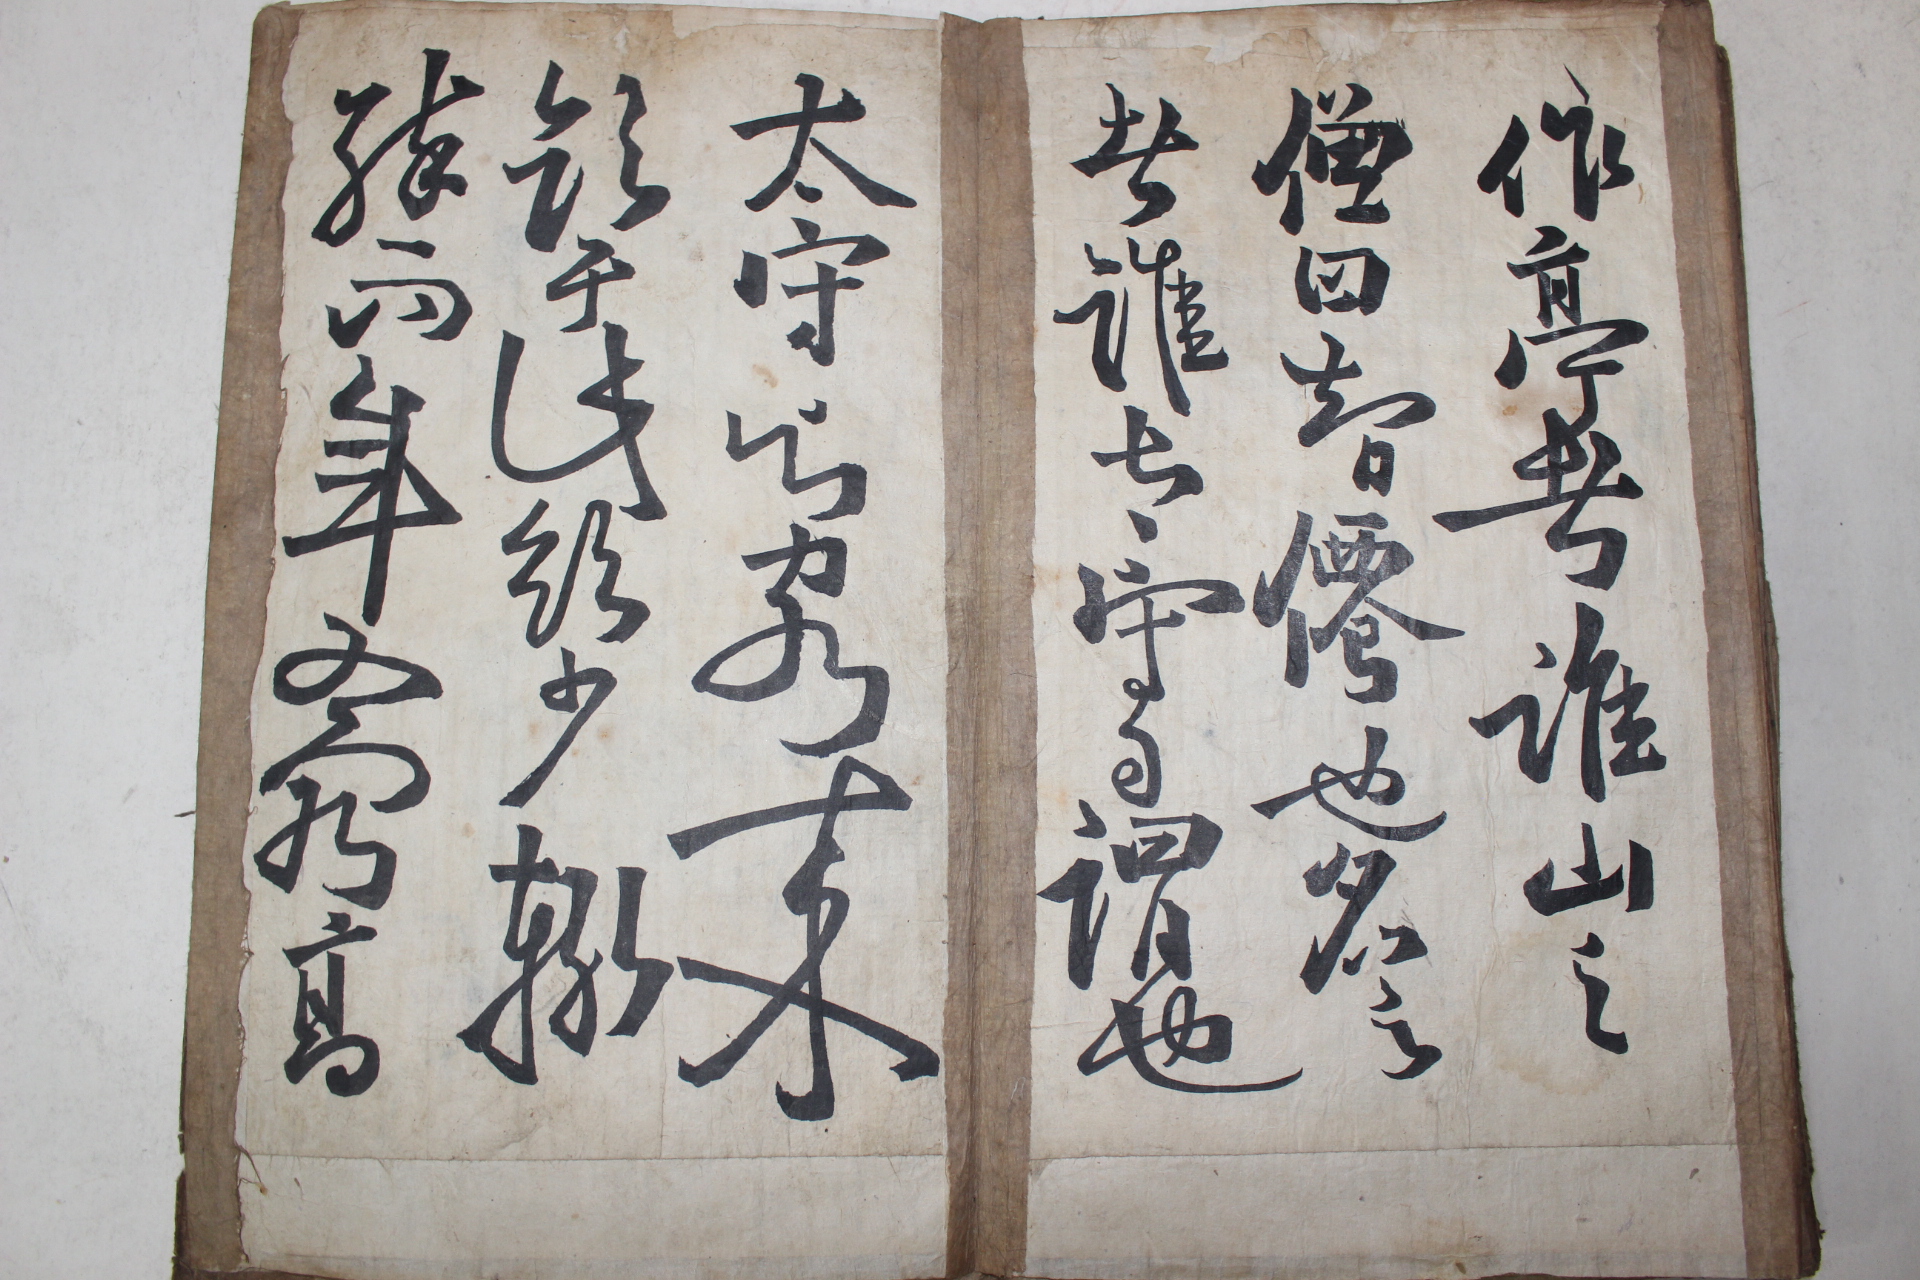 作亭者誰山之
僧曰智僊也名之
者誰太守自謂也
太守與客來
飲于此飲少輒
醉而年又最高